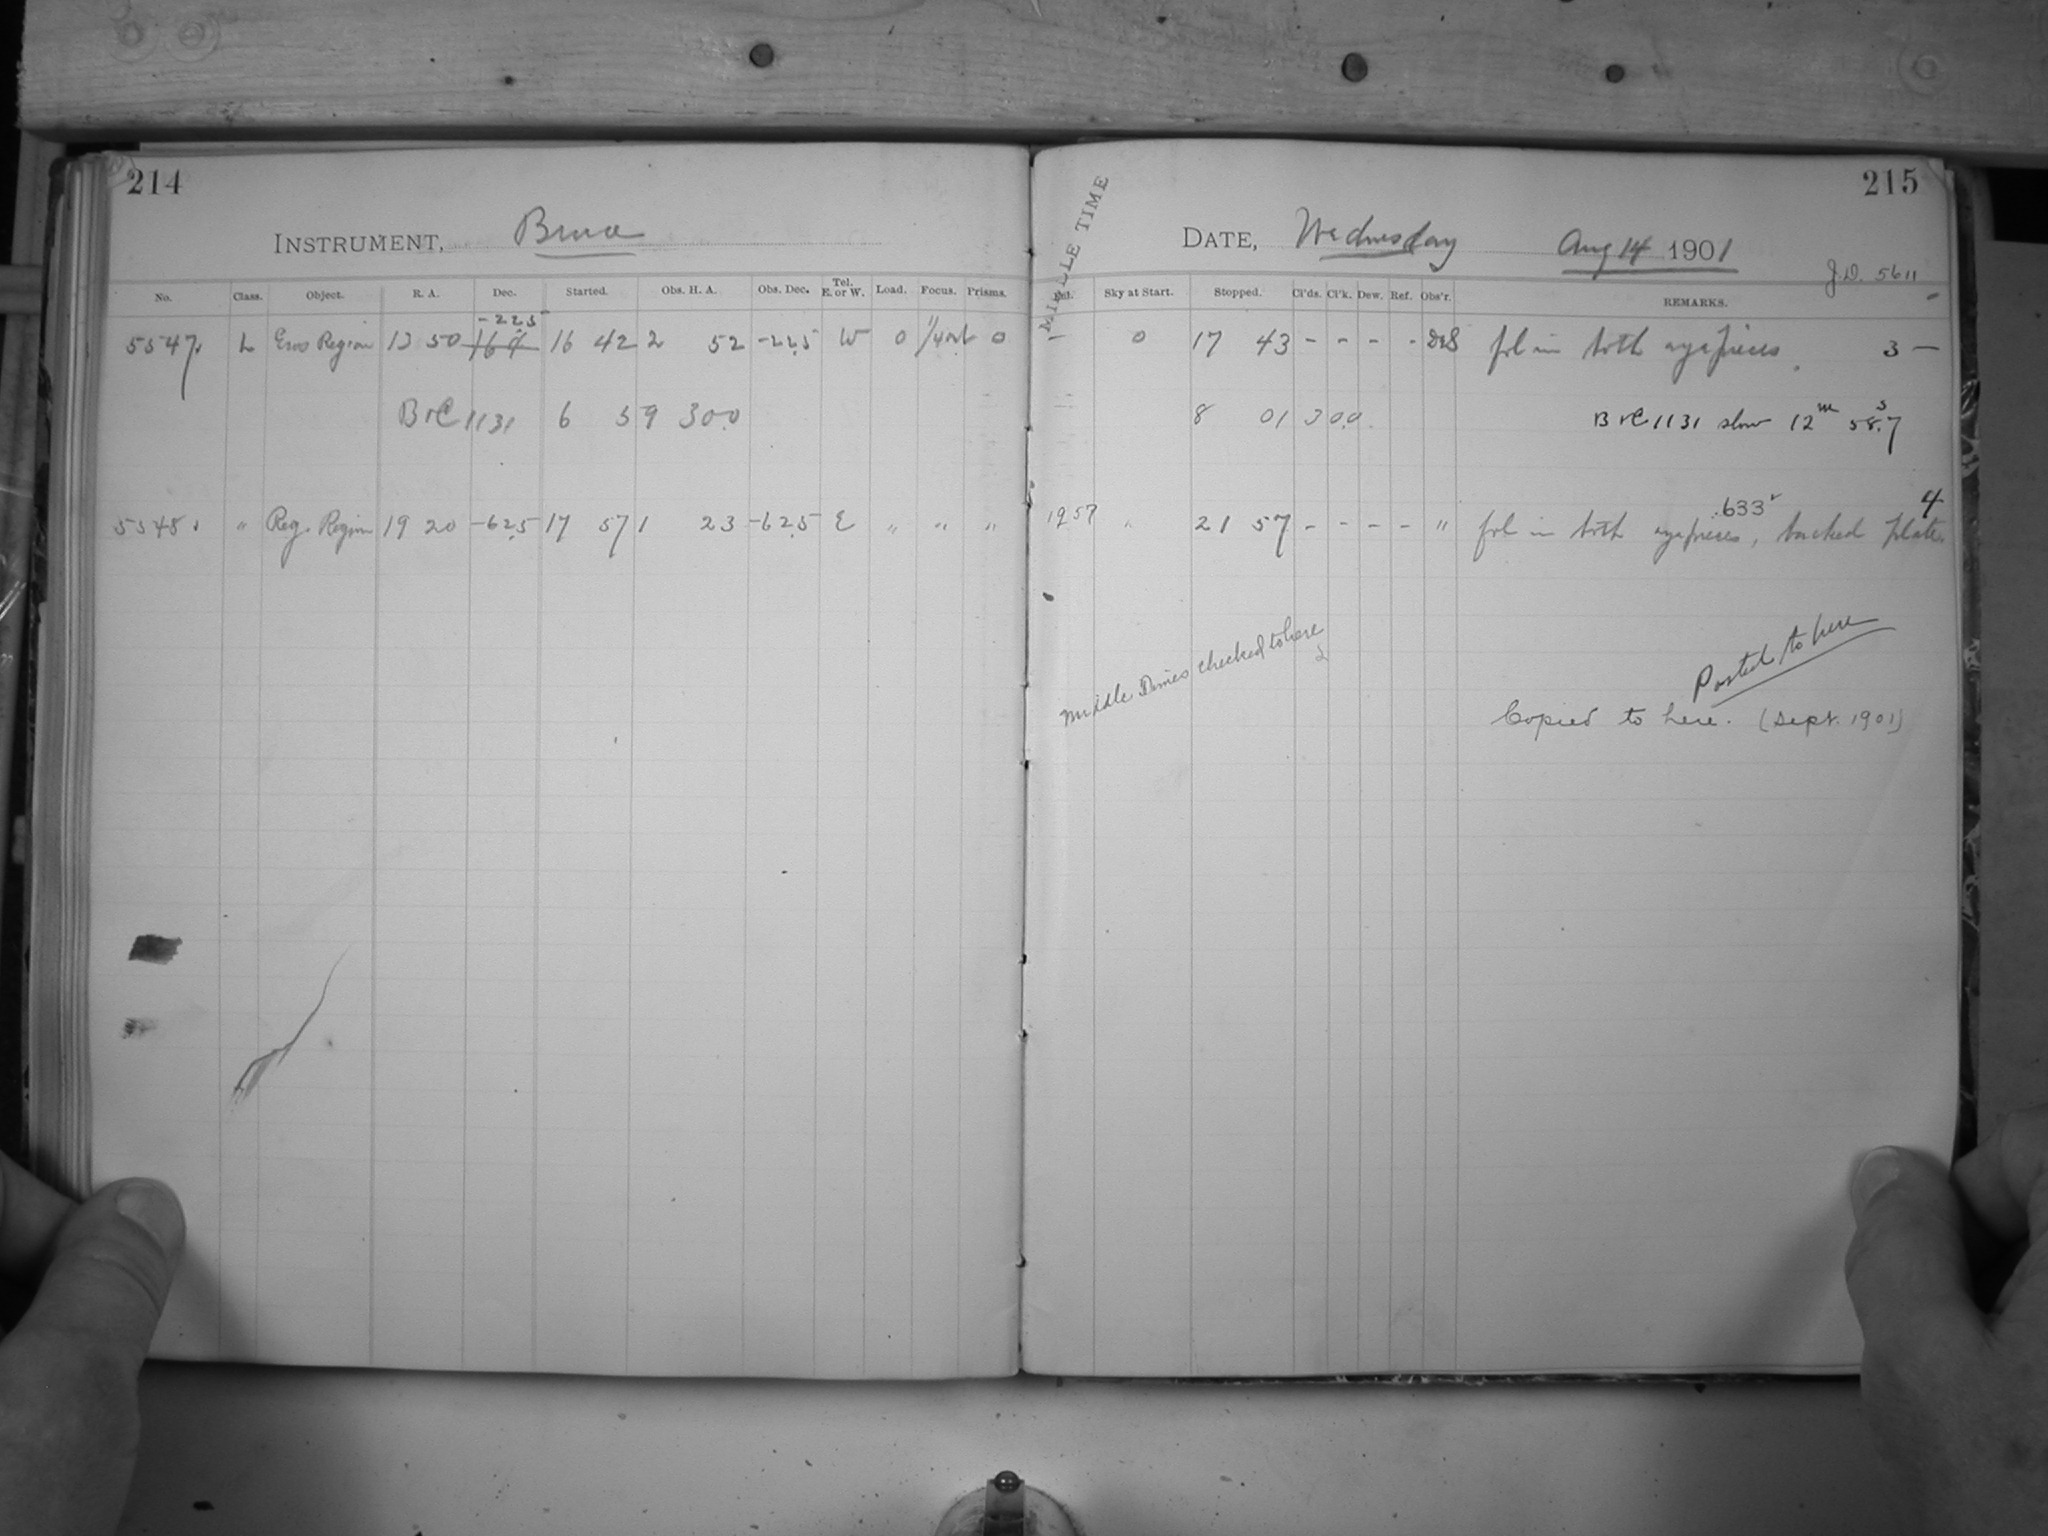 214
INSTRUMENT, Bruce
No. Class. Object. R. A. Dec. Started. Obs. H. A. Obs. Dec. Tel. E. or W. Load. Focus. Prisms.
-22.5
5547. L Eros Region 13 50 16 42 2 52 -22.5 W 0 0
B & C 1131 6 59 30.0
5548. " Reg. Region 19 20 -62.5 17 57 1 23 -62.5 E " " "
215
MIDDLE TIME
DATE, Wednesday Aug 14 1901
J.D. 5611
Sky at Start. Stopped. Cl'ds. Cl'k. Dew. Ref. Obs'r. REMARKS.
0 17 43 - - - - fol in both eyepieces. 3 —
8 01 30.0 B & C 1131 slow 12m 58.7s
.633r 4
1957 " 21 57 - - - - " fol in both eyepieces, backed plate.
Middle Times checked to here
Posted to here
Copied to here. (Sept. 1901)